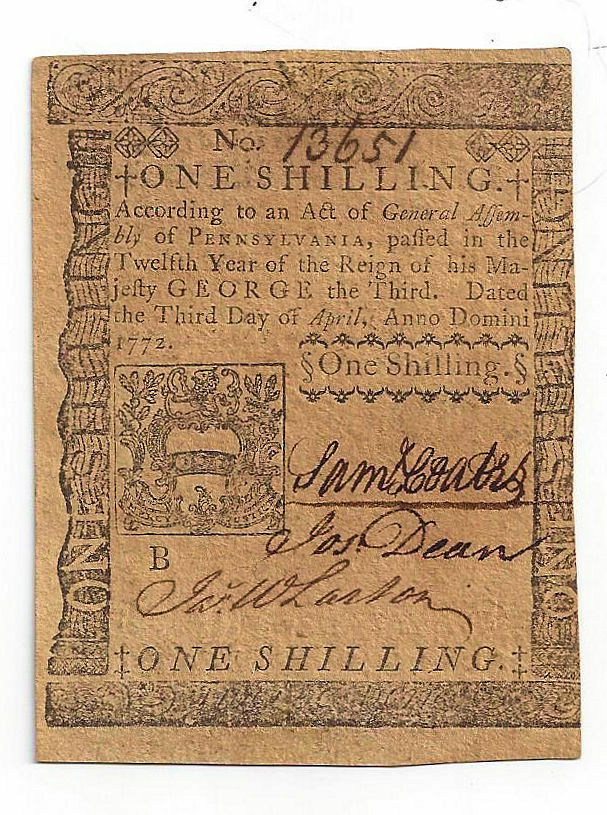 No. 13651
‡ONE SHILLING.‡
According to an Act of General Aſſem-
bly of PENNSYLVANIA, paſſed in the
Twelfth Year of the Reign of his Ma-
jeſty GEORGE the Third. Dated
the Third Day of April, Anno Domini
1772.
§One Shilling.§
Saml Coates
Jos. Dean
B
‡ONE SHILLING.‡